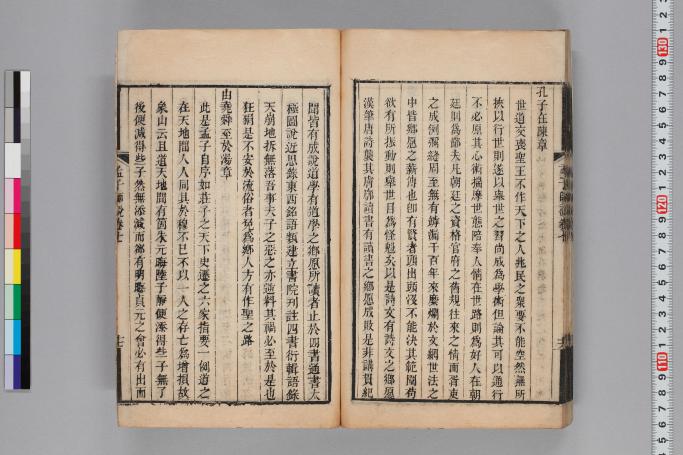 孔子在陳章
世道交喪聖王不作天下之人兆民之衆要不能空然無所
挾以行世則遂以舉世之習尚成為學術但論其可以通行
不必原其心術揣摩世態陪奉人情在世路則為好人在朝
廷則為鄙夫凡朝廷之資格官府之舊規往來之情面胥吏
之成例彌縫周至無有罅漏千百年來糜爛於文網世法之
中皆鄉愿之薪傳也即有賢者頭出頭沒不能決其範圍苟
欲有所振動則舉世目為怪魁矣以是詩文有詩文之鄉愿
漢筆唐詩襲其膚廓讀書有讀書之鄉愿成敗是非講貫紀
聞皆有成說道學有道學之鄉愿所讀者止於四書通書太
極圖說近思錄東西銘語類建立書院刊註四書衍輯語錄
天崩地拆無落吾事夫子之惡之亦逆料其禍必至於是也
狂狷是不安於流俗者免為鄉人方有作聖之路
由堯舜至於湯章
此是孟子自序如莊子之天下史遷之六家指要一例道之
在天地間人人同具於穆不已不以一人之存亡為增損故
象山云且道天地間有箇朱元晦陸子靜便添得些子無了
後便減得些子然無添減而卻有明晦貞元之會必有出而
孟子師說卷七